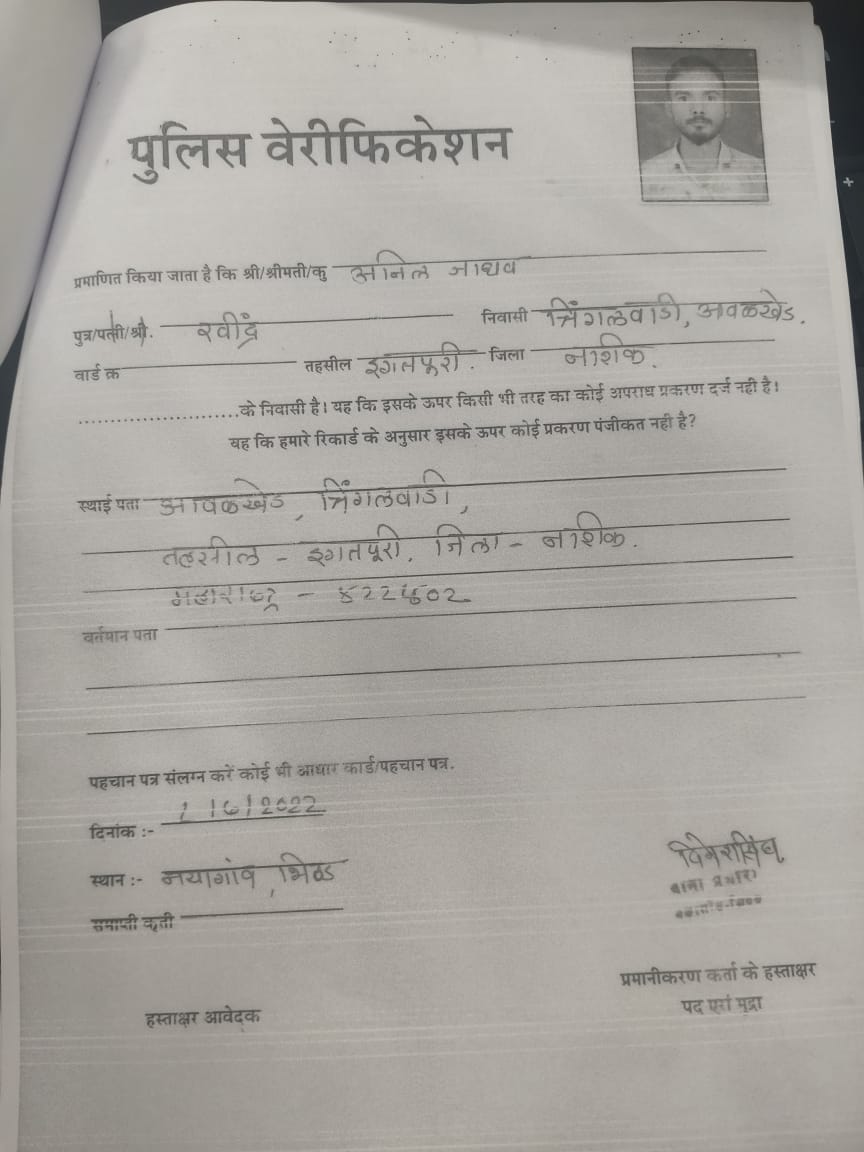 पुलिस वेरीफिकेशन
प्रमाणित किया जाता है कि श्री/श्रीमती/कु अनिल जाधव
पुत्र/पत्नी/श्री. रवींद्र निवासी त्रिंगलवाडी, आवळखेड.
वार्ड क्र तहसील इगतपूरी. जिला नाशिक.
........................के निवासी है। यह कि इसके ऊपर किसी भी तरह का कोई अपराध प्रकरण दर्ज नही है।
यह कि हमारे रिकार्ड के अनुसार इसके ऊपर कोई प्रकरण पंजीकत नही है?
स्थाई पता आवळखेड, त्रिंगलवाडी,
तहसील - इगतपूरी. जिला - नाशिक.
महाराष्ट्र -
वर्तमान पता
पहचान पत्र संलग्न करें कोई भी आधार कार्ड/पहचान पत्र.
दिनांक :-
स्थान :- नयागांव, भिण्ड
समाप्ती कृती
थाना प्रभारी
प्रमानीकरण कर्ता के हस्ताक्षर
हस्ताक्षर आवेदक पद एवं मुद्रा